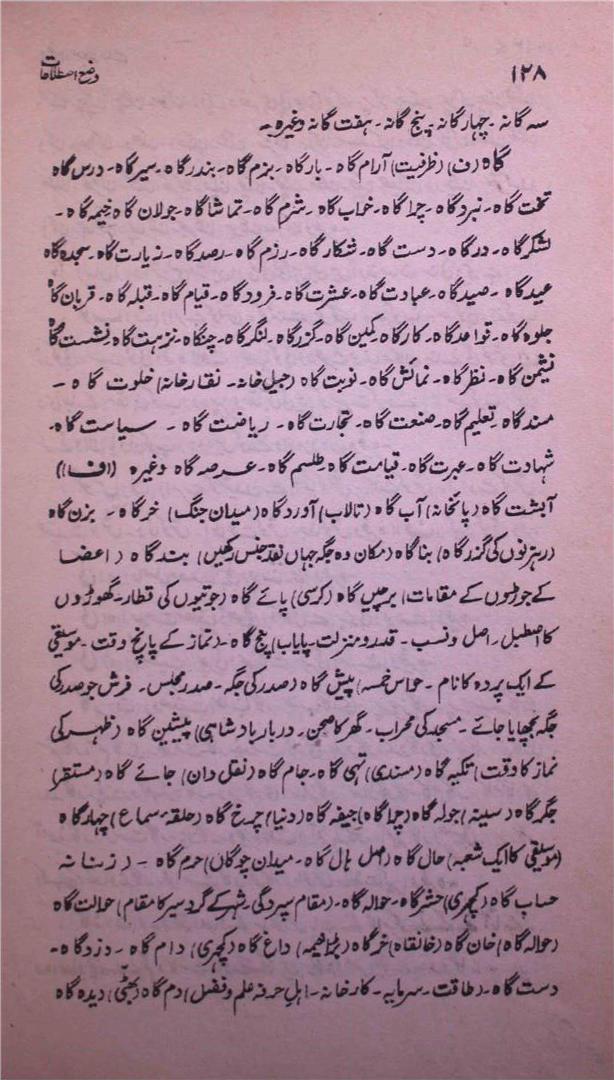 ۱۲۸
وضع اصطلاحات
سہ گانہ ۔ چہار گانہ ۔ پنج گانہ ۔ ہفت گانہ وغیرہ ۔
گاہ (ف) (ظرفیت) آرام گاہ ۔ بارگاہ ۔ بزم گاہ ۔ بندرگاہ ۔ سیرگاہ ۔ درس گاہ
تخت گاہ ۔ نبردگاہ ۔ چراگاہ ۔ خواب گاہ ۔ شرم گاہ ۔ تماشاگاہ ۔ جولان گاہ خیمہ گاہ ۔
لشکرگاہ ۔ درگاہ ۔ دست گاہ ۔ شکارگاہ ۔ رزم گاہ ۔ رصدگاہ ۔ زیارت گاہ ۔ سجدہ گاہ
عیدگاہ ۔ صیدگاہ ۔ عبادت گاہ ۔ عشرت گاہ ۔ فرودگاہ ۔ قیام گاہ ۔ قبلہ گاہ ۔ قربان گاہ
جلوہ گاہ ۔ قواعدگاہ ۔ کارگاہ کمین گاہ ۔ گزرگاہ ۔ لنگرگاہ ۔ چنگاہ ۔ نزہت گاہ نشست گاہ
نشیمن گاہ ۔ نظرگاہ ۔ نمائش گاہ ۔ نوبت گاہ (جیل خانہ ۔ نقارخانہ) خلوت گاہ ۔
مسندگاہ تعلیم گاہ ۔ صنعت گاہ ۔ تجارت گاہ ۔ ریاضت گاہ ۔ سیاست گاہ ۔
شہادت گاہ ۔ عبرت گاہ ۔ قیامت گاہ طلسم گاہ ۔ عرصہ گاہ وغیرہ ((ف))
آبشت گاہ (پائخانہ) آب گاہ (تالاب) آوردگاہ (میدان جنگ) خرگاہ ۔ بزن گاہ
(رہزنوں کی گزرگاہ) بناگاہ (مکان وہ جگہ جہاں نقد جنس رکھیں) بندگاہ (اعضا
کے جوڑوں کے مقامات) برجیس گاہ (کرسی) پائے گاہ (جوتیوں کی قطار ۔ گھوڑوں
کا اصطبل ۔ اصل و نسب ۔ قدر و منزلت ۔ پایاب) پنج گاہ ۔ (نماز کے پانچ وقت ۔ موسیقی
کے ایک پردہ کا نام ۔ حواس خمسہ) پیش گاہ (صدر کی جگہ ۔ صدر مجلس ۔ فرش جو صدر کی
جگہ بچھایا جائے ۔ مسجد کی محراب ۔ گھر کا صحن ۔ دربار بادشاہی) پیشین گاہ (ظہر کی
نماز کا وقت) تکیہ گاہ (مسندی) تہی گاہ ۔ جام گاہ (نقل دان) جائے گاہ (مستقر)
جگرگاہ (سینہ) جولہ گاہ (چراگاہ) جیفہ گاہ (دنیا) چرخ گاہ (حلقہ سماع) چہارگاہ
(موسیقی کا ایک شعبہ) حال گاہ (اصل ہال گاہ ۔ میدان چوگاں) حرم گاہ ۔ (زنانہ
حساب گاہ (کچہری) حشرگاہ ۔ حوالہ گاہ ۔ (مقام سپردگی ۔ شہر کے گرد سیر کا مقام) حوالت گاہ
(حوالہ گاہ) خان گاہ (خانقاہ) خرگاہ (بڑا خیمہ) داغ گاہ (کچہری) دام گاہ ۔ دزدگاہ ۔
دست گاہ ۔ (طاقت ۔ سرمایہ ۔ کارخانہ ۔ اہل حرفہ علم و فضل) دم گاہ (بھٹی) دیدہ گاہ